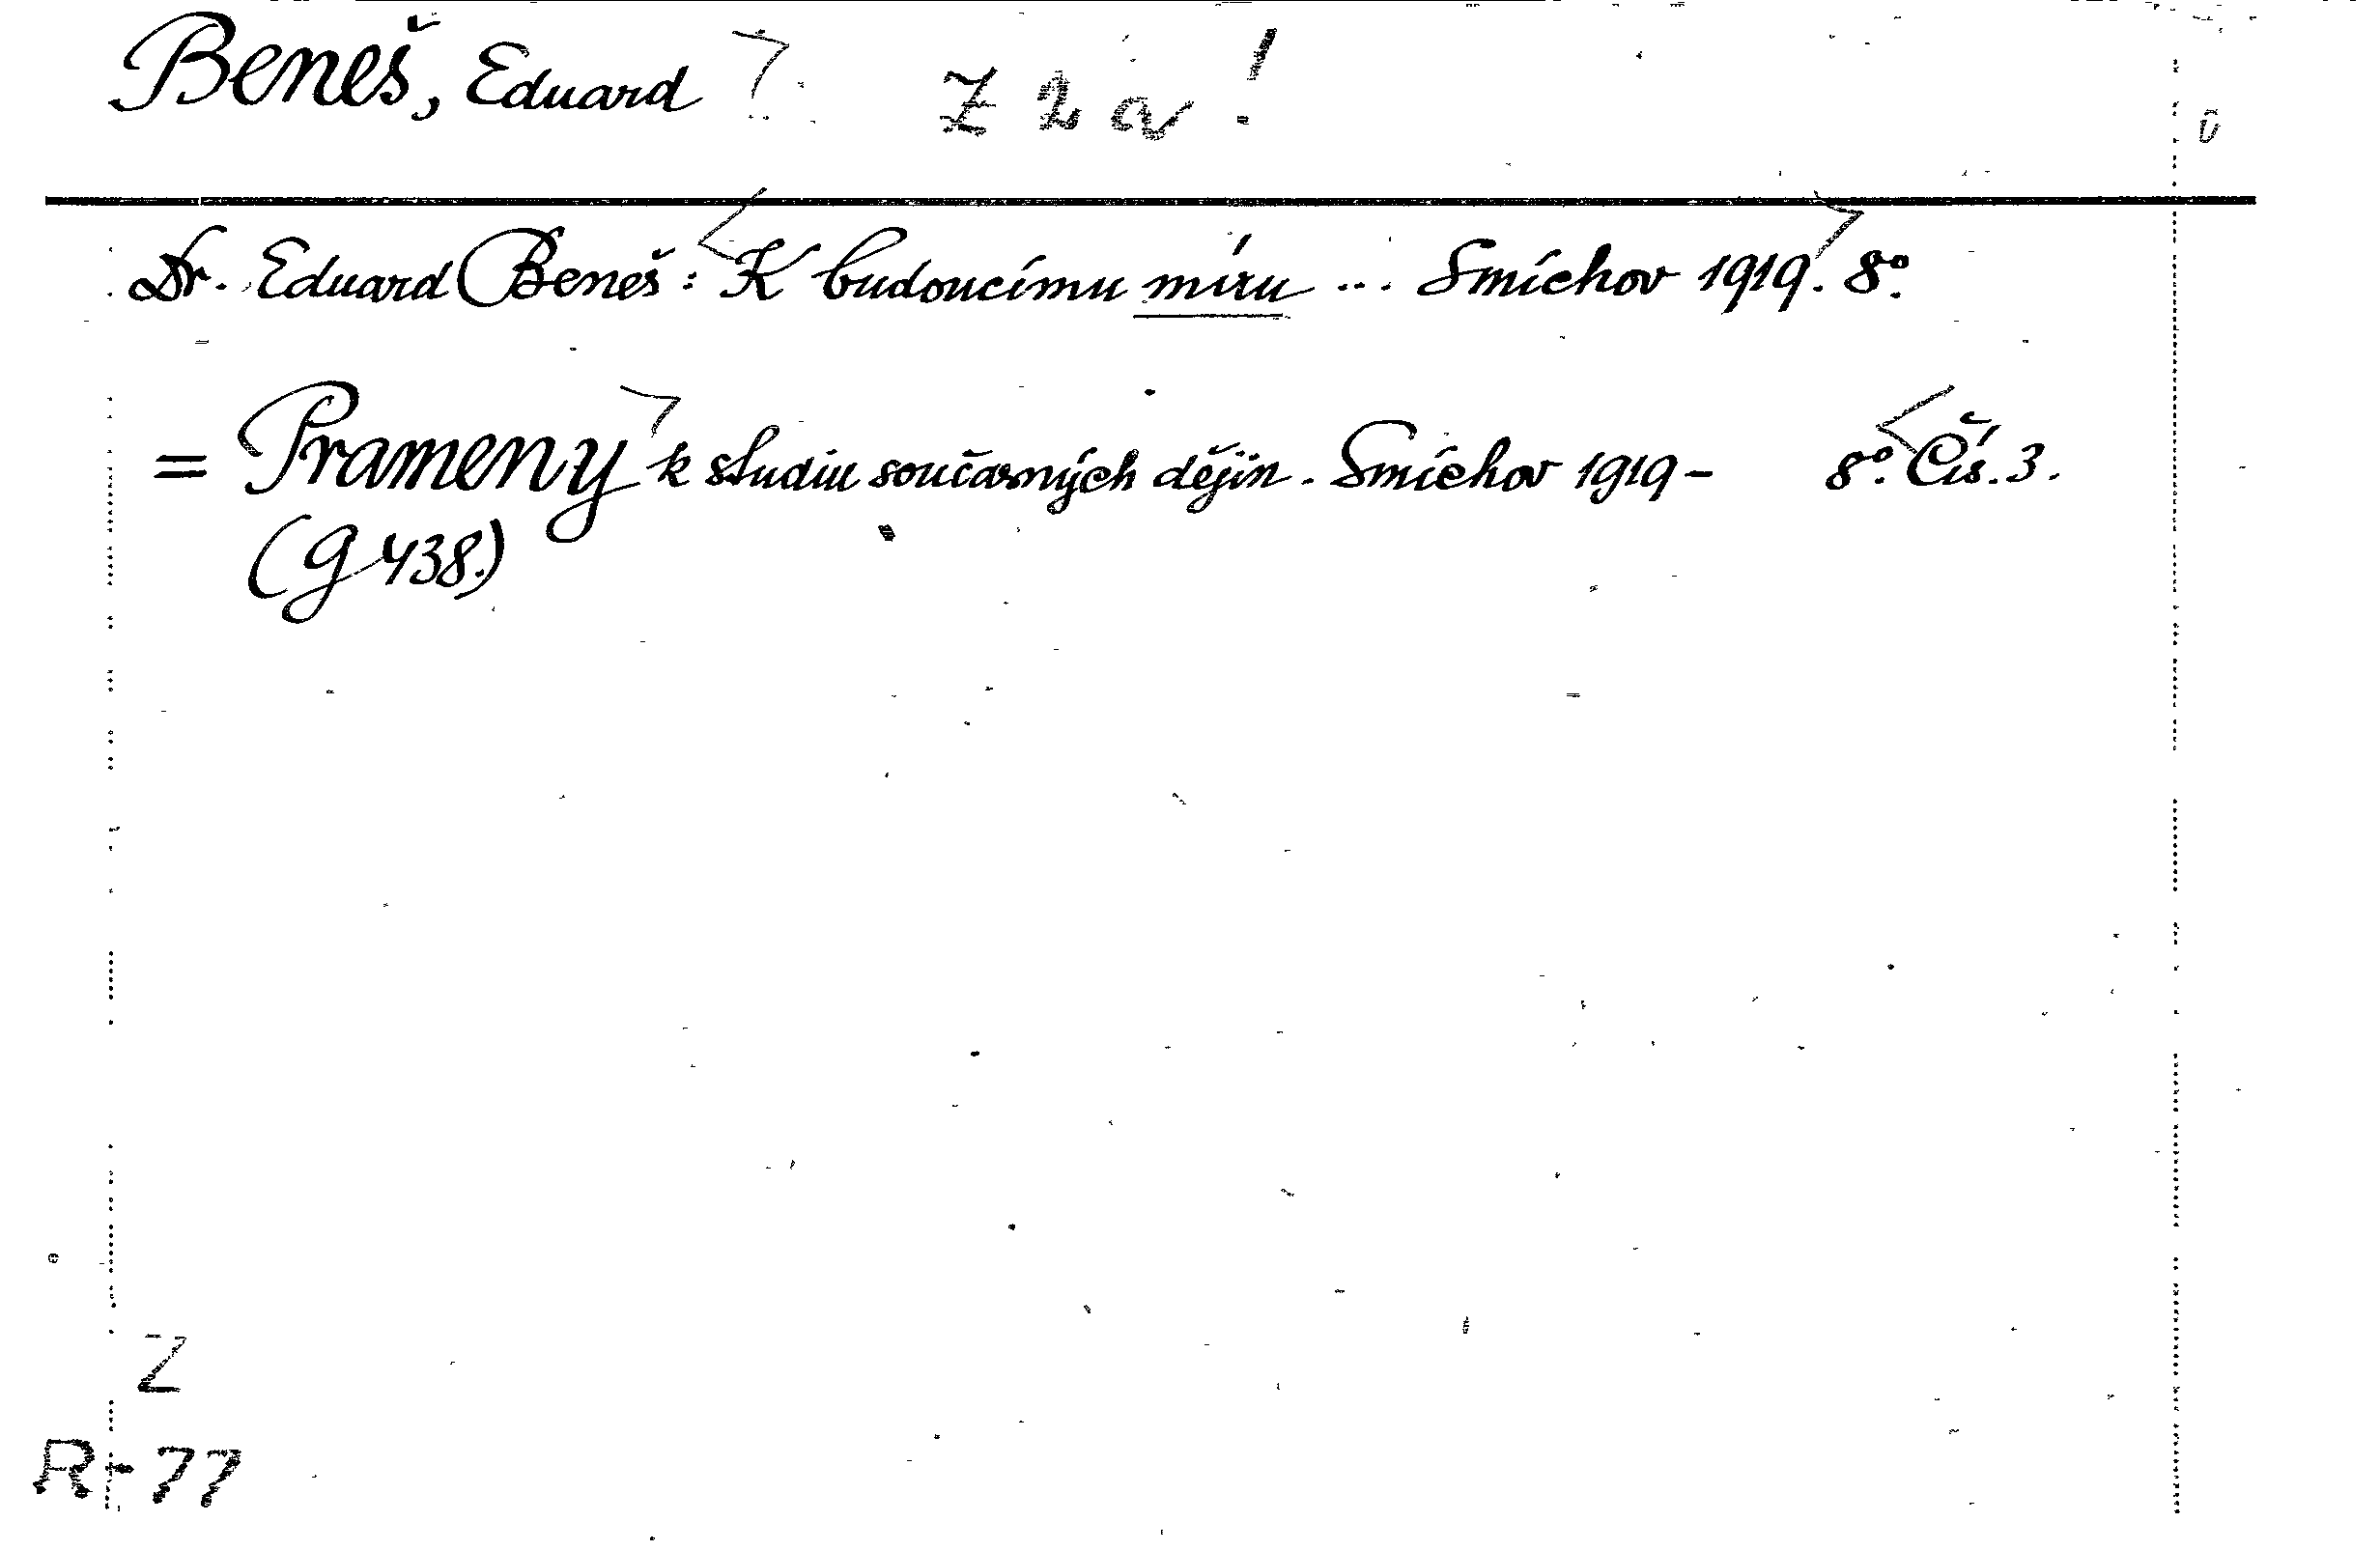 Beneš, Eduard Z 2 a !
Dr. Eduard Beneš: K budoucímu míru ... Smíchov 1919. 8º.
= Prameny k studiu současných dějin. Smíchov 1919 - 8º. Čís. 3.
(G 438.)
Z
R-77